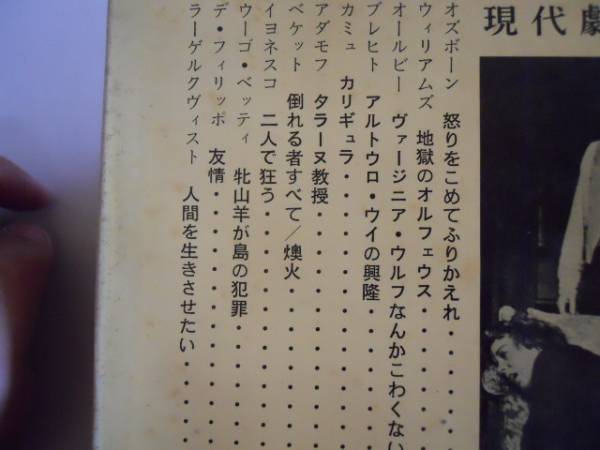 現代劇
オズボーン 怒りをこめてふりかえれ・・・・・
ウィリアムズ 地獄のオルフェウス・・・・・・
オールビー ヴァージニア・ウルフなんかこわくない
ブレヒト アルトウロ・ウイの興隆・・・・・・
カミュ カリギュラ・・・・・・・・・・・
アダモフ タラーヌ教授・・・・・・・・・
ベケット 倒れる者すべて/燠火・・・・・・
イヨネスコ 二人で狂う・・・・・・・・・
ウーゴ・ベッティ 牝山羊が島の犯罪・・・・・
デ・フィリッポ 友情・・・・・・・・・・
ラーゲルクヴィスト 人間を生きさせたい・・・・